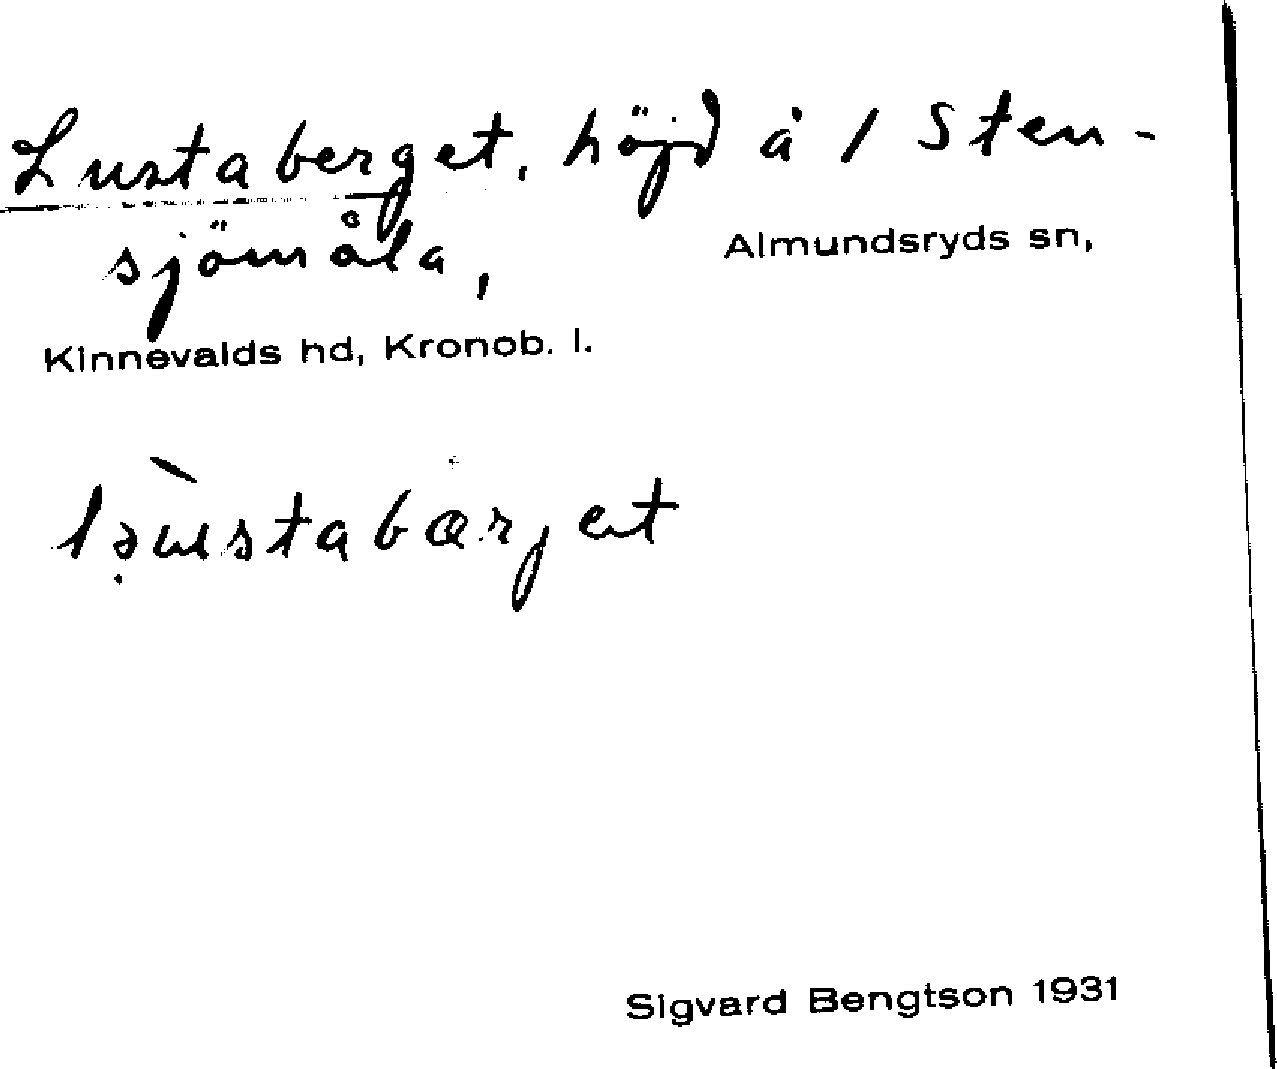 Lustaberget, höjd å 1 Sten-
sjömåla,
Almundsryds sn,
Kinnevalds hd, Kronob. l.
lə̣ùstabærjet
Sigvard Bengtson 1931